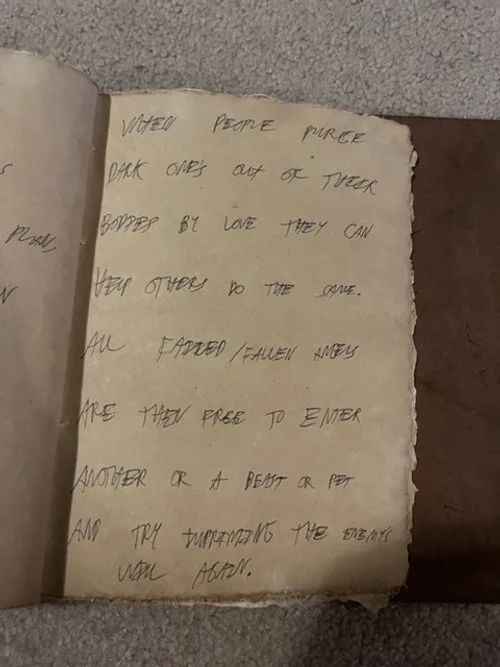 S
PLAN,
N
WHEN PEOPLE PURGE
DARK ONE'S OUT OF THEIR
BODDIES BY LOVE THEY CAN
HELP OTHERS DO THE SAME.
ALL FADDED/FALLEN ANGELS
ARE THEN FREE TO ENTER
ANOTHER OR A BEAST OR PET
AND TRY IMPRINTING THE ENEMYS
WILL AGAIN.